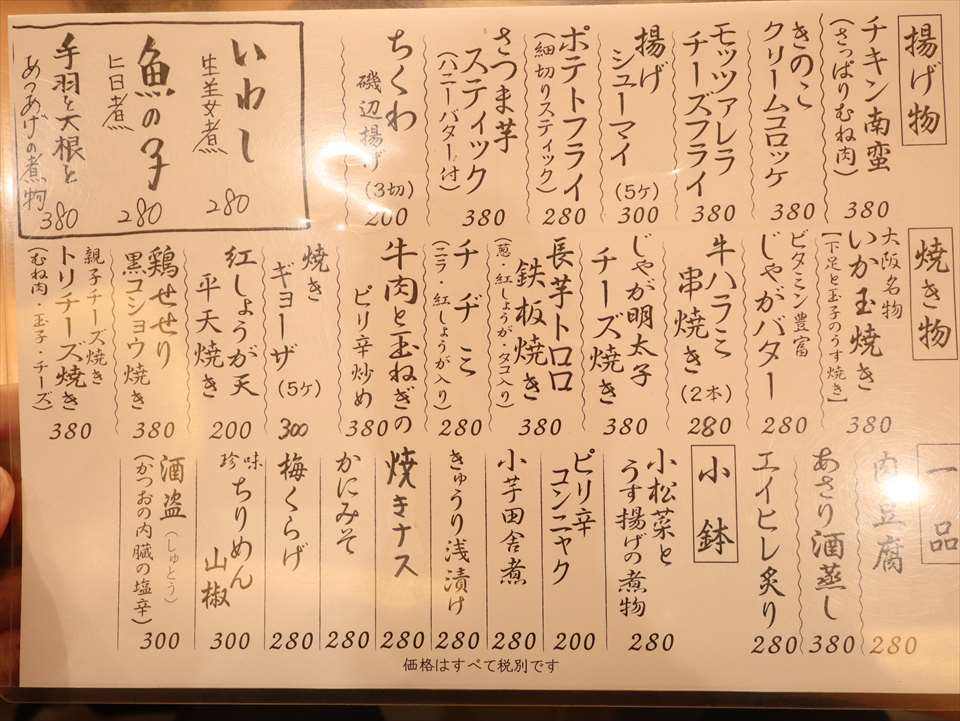 揚げ物
チキン南蛮
(さっぱりむね肉)
380
きのこ
クリームコロッケ
380
モッツァレラ
チーズフライ
380
揚げ
シューマイ
(5ケ)
300
ポテトフライ
(細切りスティック)
280
さつま芋
スティック
(ハニーバター付)
380
ちくわ
磯辺揚げ
(3切)
200
いわし
生姜煮
280
魚の子
旨煮
280
手羽と大根と
あつあげの煮物
380
焼き物
大阪名物
いか玉焼き
【下足と玉子のうす焼き】
380
ビタミン豊富
じゃがバター
280
牛ハラミ
串焼き
(2本)
280
じゃが明太子
チーズ焼き
380
長芋トロロ
鉄板焼き
(葱・紅しょうが・タコ入り)
380
チヂミ
(ニラ・紅しょうが入り)
280
牛肉と玉ねぎの
ピリ辛炒め
380
焼き
ギョーザ
(5ケ)
300
紅しょうが天
平天焼き
200
鶏せせり
黒コショウ焼き
380
親子チーズ焼き
トリチーズ焼き
(むね肉・玉子・チーズ)
380
一品
肉豆腐
280
あさり酒蒸し
380
エイヒレ炙り
280
小鉢
小松菜と
うす揚げの煮物
280
ピリ辛
コンニャク
200
小芋田舎煮
280
きゅうり浅漬け
280
焼きナス
280
かにみそ
280
梅くらげ
280
珍味
ちりめん
山椒
300
酒盗
(しゅとう)
(かつおの内臓の塩辛)
300
価格はすべて税別です